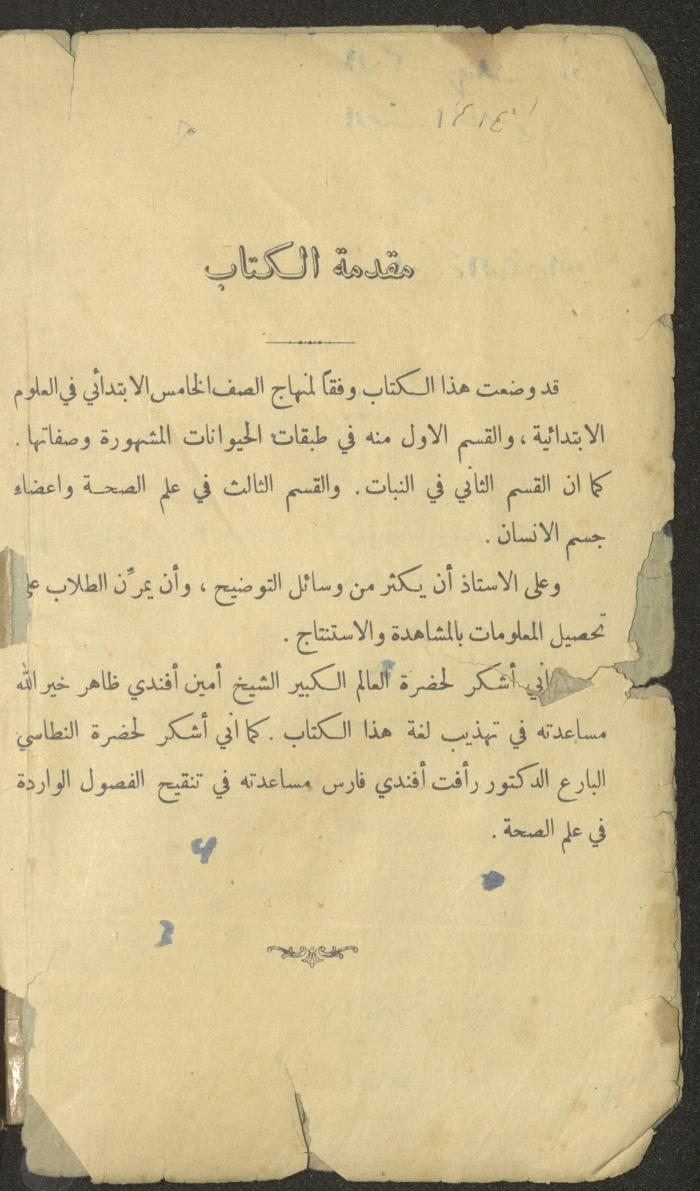 مقدمة الكتاب
قد وضعت هذا الكتاب وفقاً لمنهاج الصف الخامس الابتدائي في العلوم
الابتدائية ، والقسم الاول منه في طبقات الحيوانات المشهورة وصفاتها .
كما ان القسم الثاني في النبات . والقسم الثالث في علم الصحة واعضاء
جسم الانسان .
وعلى الاستاذ أن يكثر من وسائل التوضيح ، وأن يمرِّن الطلاب على
تحصيل المعلومات بالمشاهدة والاستنتاج .
اني أشكر لحضرة العالم الكبير الشيخ أمين أفندي ظاهر خير الله
مساعدته في تهذيب لغة هذا الكتاب . كما اني أشكر لحضرة النطاسي
البارع الدكتور رأفت أفندي فارس مساعدته في تنقيح الفصول الواردة
في علم الصحة .